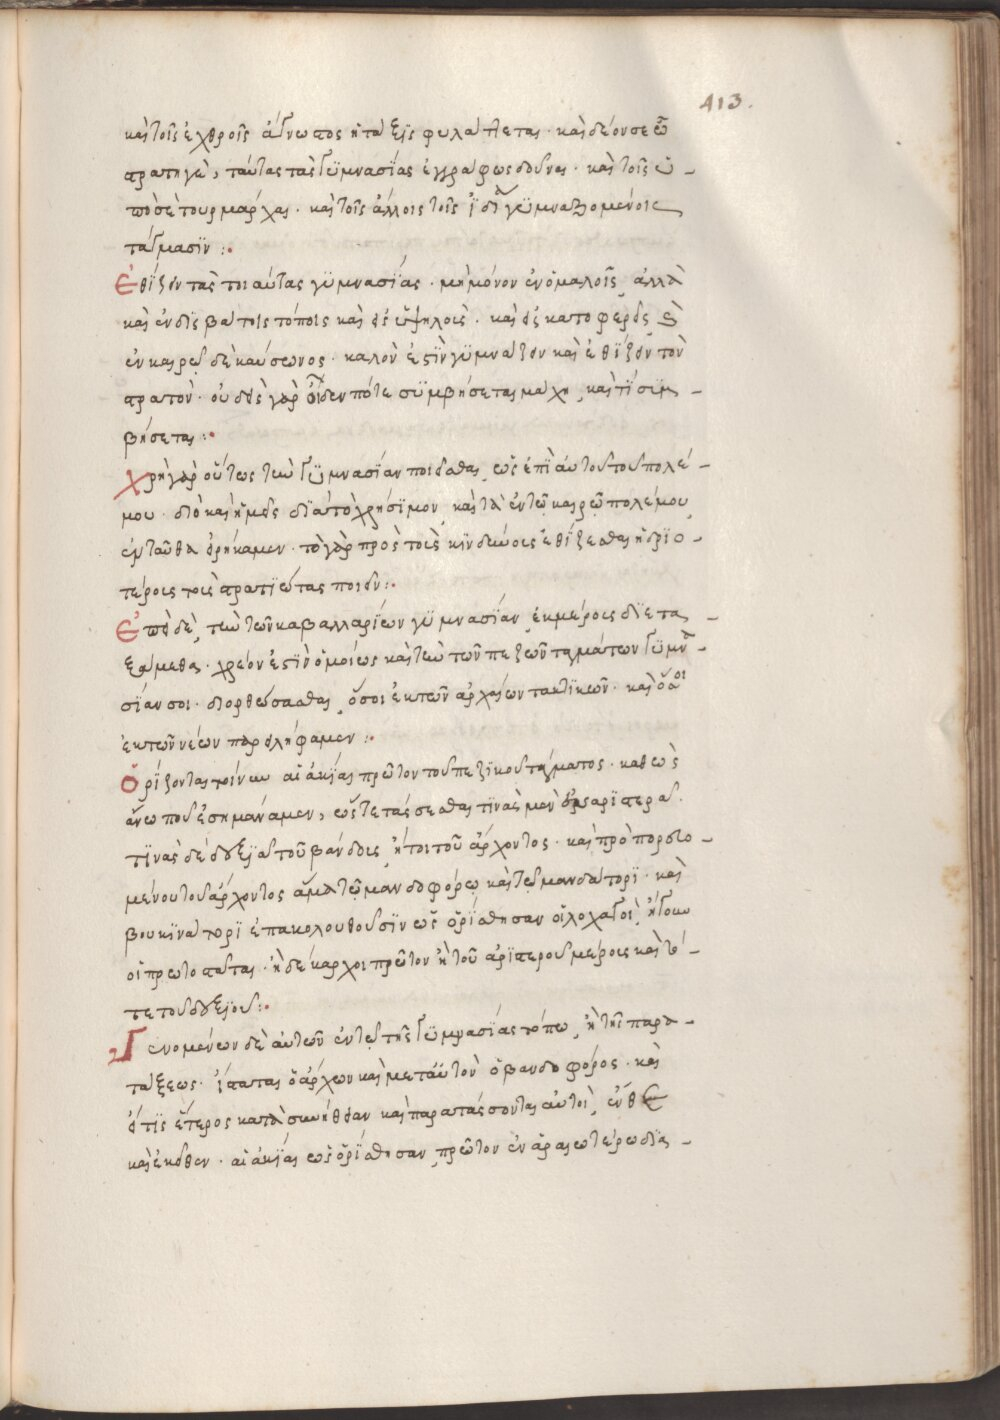 413.
καὶ τοῖς ἐχθροῖς ἄγνωστος ἡ τάξις φυλάττεται· καὶ δέον σε ὦ
στρατηγὲ, ταύτας τὰς γϋμνασΐας ἐγγράφως δοῦναι· καὶ τοῖς ὑ-
πό σε τουρμάρχαις· καὶ τοῖς ἄλλοις τοῖς ἰδία γϋμναζομένοις
τάγμασϊν:·
Ἐθΐζειν τὰς τοιαύτας γϋμνασΐας· μὴ μόνον ἐν ὁμαλοῖς, ἀλλὰ
καὶ ἐν δϋσβάτοις τόποις καὶ ἐν ὑψηλοῖς· καὶ ἐν κατωφερέσι, καὶ
ἐν καιρῷ δὲ καύσωνος· καλὸν ἐστϊν γϋμνάζειν καὶ ἐθΐζειν τὸν
στρατόν· οὐδεὶς γὰρ οἶδεν πότε συμβήσεται μάχη, καὶ τί συμ-
βήσεται:·
Χρὴ γὰρ οὕτως τὴν γϋμνασΐαν ποιεῖσθαι, ὡς ἐπὶ αὐτοῦ τοῦ πολέ-
μου· διὸ καὶ ἡμεῖς διὰ τὸ χρήσϊμον, καὶ τὰ ἐν τῷ καιρῷ πολέμου,
ἐνταῦθα εἰρήκαμεν· τὸ γὰρ πρὸς τοὺς κϊνδύνους ἐθίζεσθαι ἡδρϊο-
τέρους τοὺς στρατϊώτας ποιεῖ:·
Ἐπεὶ δὲ, τὴν τῶν καβαλλαρΐων γϋμνασΐαν, ἐκ μέρους διετα-
ξάμεθα· χρεὸν ἐστϊν ὁμοίως καὶ τὴν τῶν πεζῶν ταγμάτων γϋμνα-
σΐαν σοι· διορθώσασθαι, ὅσοι ἐκ τῶν ἀρχαίων τακτϊκῶν· καὶ ὅσοι
ἐκ τῶν νέων παρειλήφαμεν:·
Ὁρίζονται τοίνυν αἱ ἀκΐαι πρῶτον τοῦ πεζϊκοῦ τάγματος· καθὼς
ἄνω που ἐσημάναμεν, ὥστε τάσσεσθαι τϊνὰς μὲν εἰς ἀριστερὰ·
τϊνὰς δὲ δεξιὰ τοῦ βάνδου, ἤτοι τοῦ ἄρχοντος· καὶ προπορευο-
μένου τοῦ ἄρχοντος ἅμα τῷ μανδοφόρῳ καὶ τῷ μανδάτορϊ· καὶ
βουκϊνάτορϊ ἐπακολουθοῦσϊν ὡς ὁρΐσθησαν οἱ λοχαγοὶ, ἤγουν
οἱ πρωτοστάται· ἢ δέκαρχοι πρῶτον ἢ τοῦ ἀρϊστεροῦ μέρους καὶ τό-
τε τοῦ δεξϊοῦ:·
Γενομένων δὲ αὐτῶν ἐν τῷ τῆς γϋμνασΐας τόπω, ἢ τῆς παρα-
τάξεως· ΐσταται ὁ ἄρχων καὶ μετ αὐτὸν ὁ βανδοφόρος· καὶ
εἴ τϊς ἕτερος κατὰ συνήθειαν καὶ παρατάσσονται αὐτοὶ, ἔνθεν
καὶ ἐκεῖθεν· αἱ ἀκΐαι ὡς ὁρΐσθησαν, πρῶτον ἐν ἀραιωτέρω δϊα-